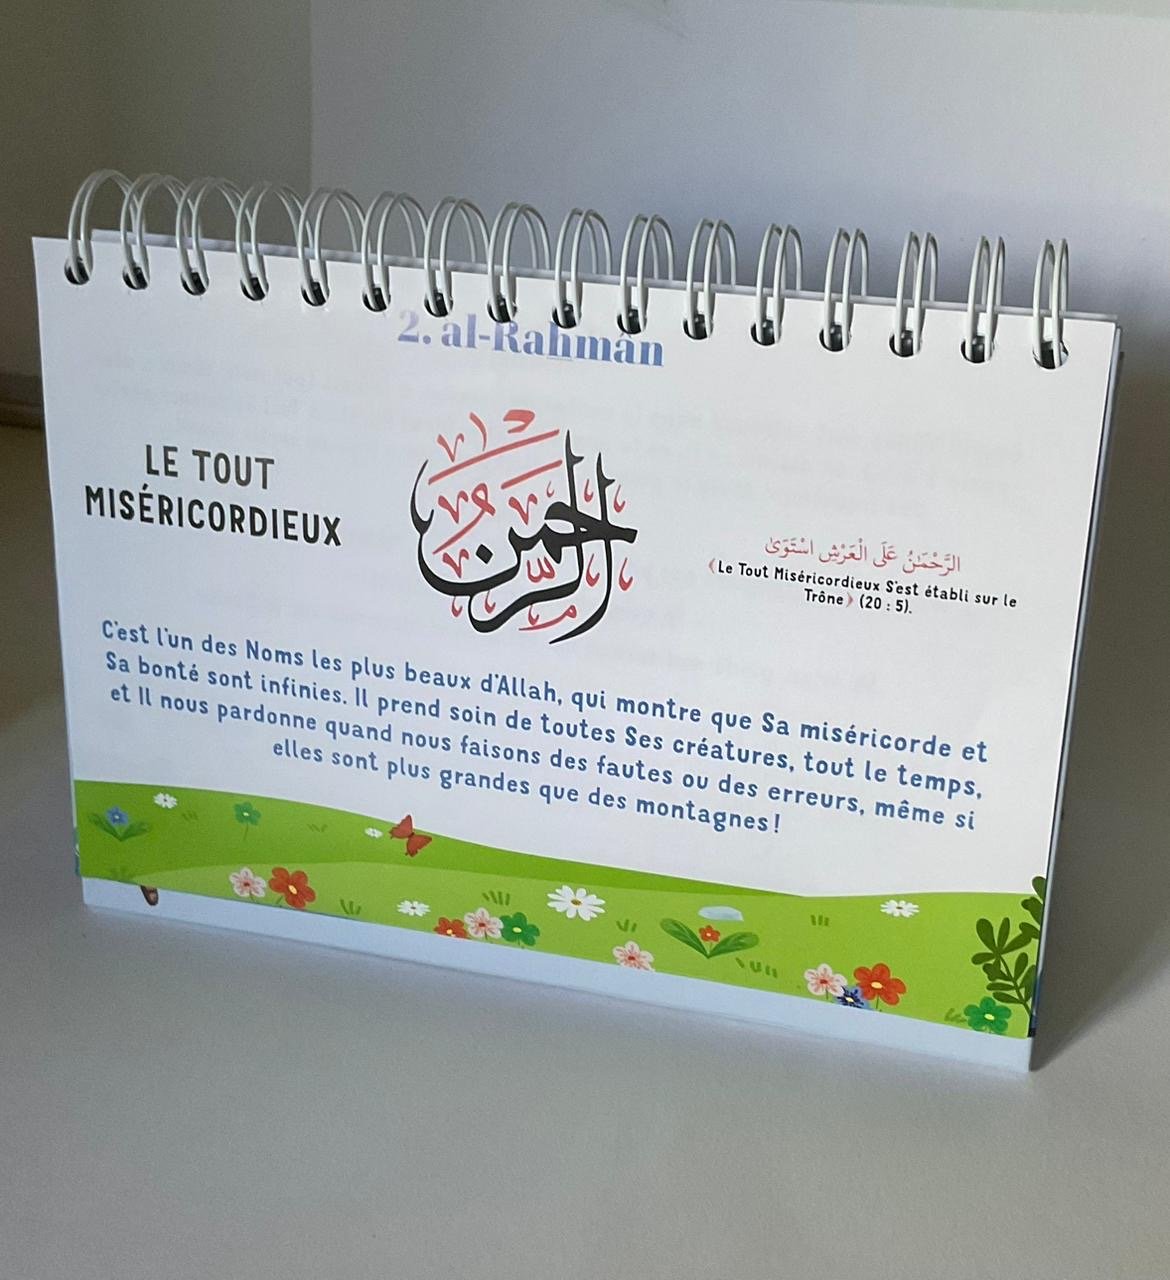 2. al-Rahmân
LE TOUT
MISÉRICORDIEUX
الرحمن
الرَّحْمَٰنُ عَلَى الْعَرْشِ اسْتَوَىٰ
﴾Le Tout Miséricordieux S'est établi sur le
Trône﴿ (20 : 5).
C'est l'un des Noms les plus beaux d'Allah, qui montre que Sa miséricorde et
Sa bonté sont infinies. Il prend soin de toutes Ses créatures, tout le temps,
et Il nous pardonne quand nous faisons des fautes ou des erreurs, même si
elles sont plus grandes que des montagnes!